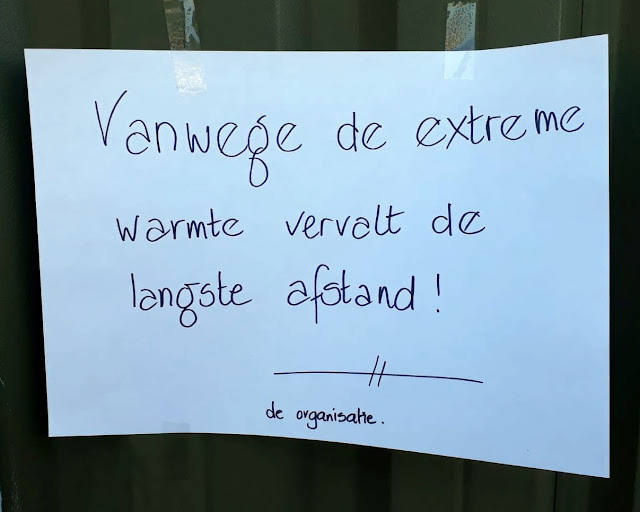 Vanwege de extreme
warmte vervalt de
langste afstand!
de organisatie.